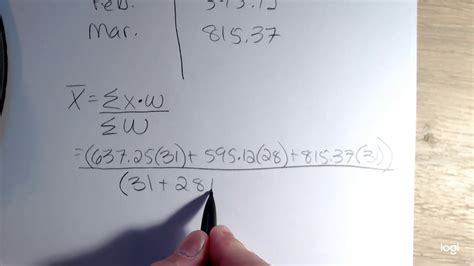 Feb.
Mar. 815.37
X̄ = Σx·w
Σw
=(637.25(31)+595.12(28)+815.37(31))
(31+28
logi